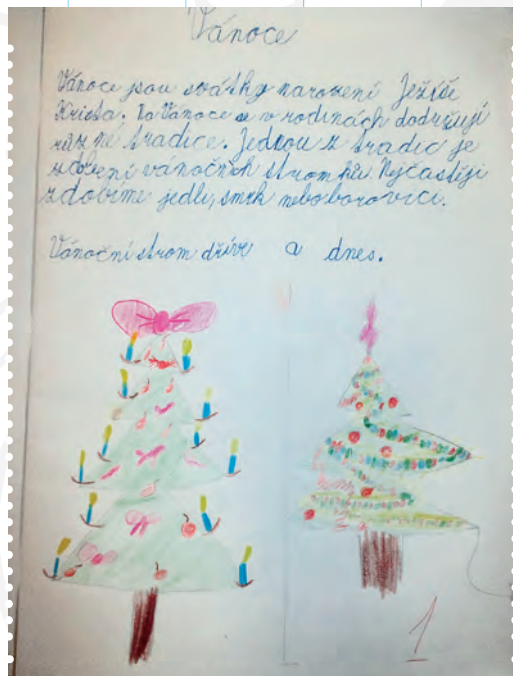 Vánoce
Vánoce jsou svátky narození Ježíše
Krista. Na Vánoce se v rodinách dodržují
různé tradice. Jednou z tradic je
zdobení vánočních stromků. Nejčastěji
zdobíme jedli, smrk nebo borovici.
Vánoční strom dříve a dnes.
1